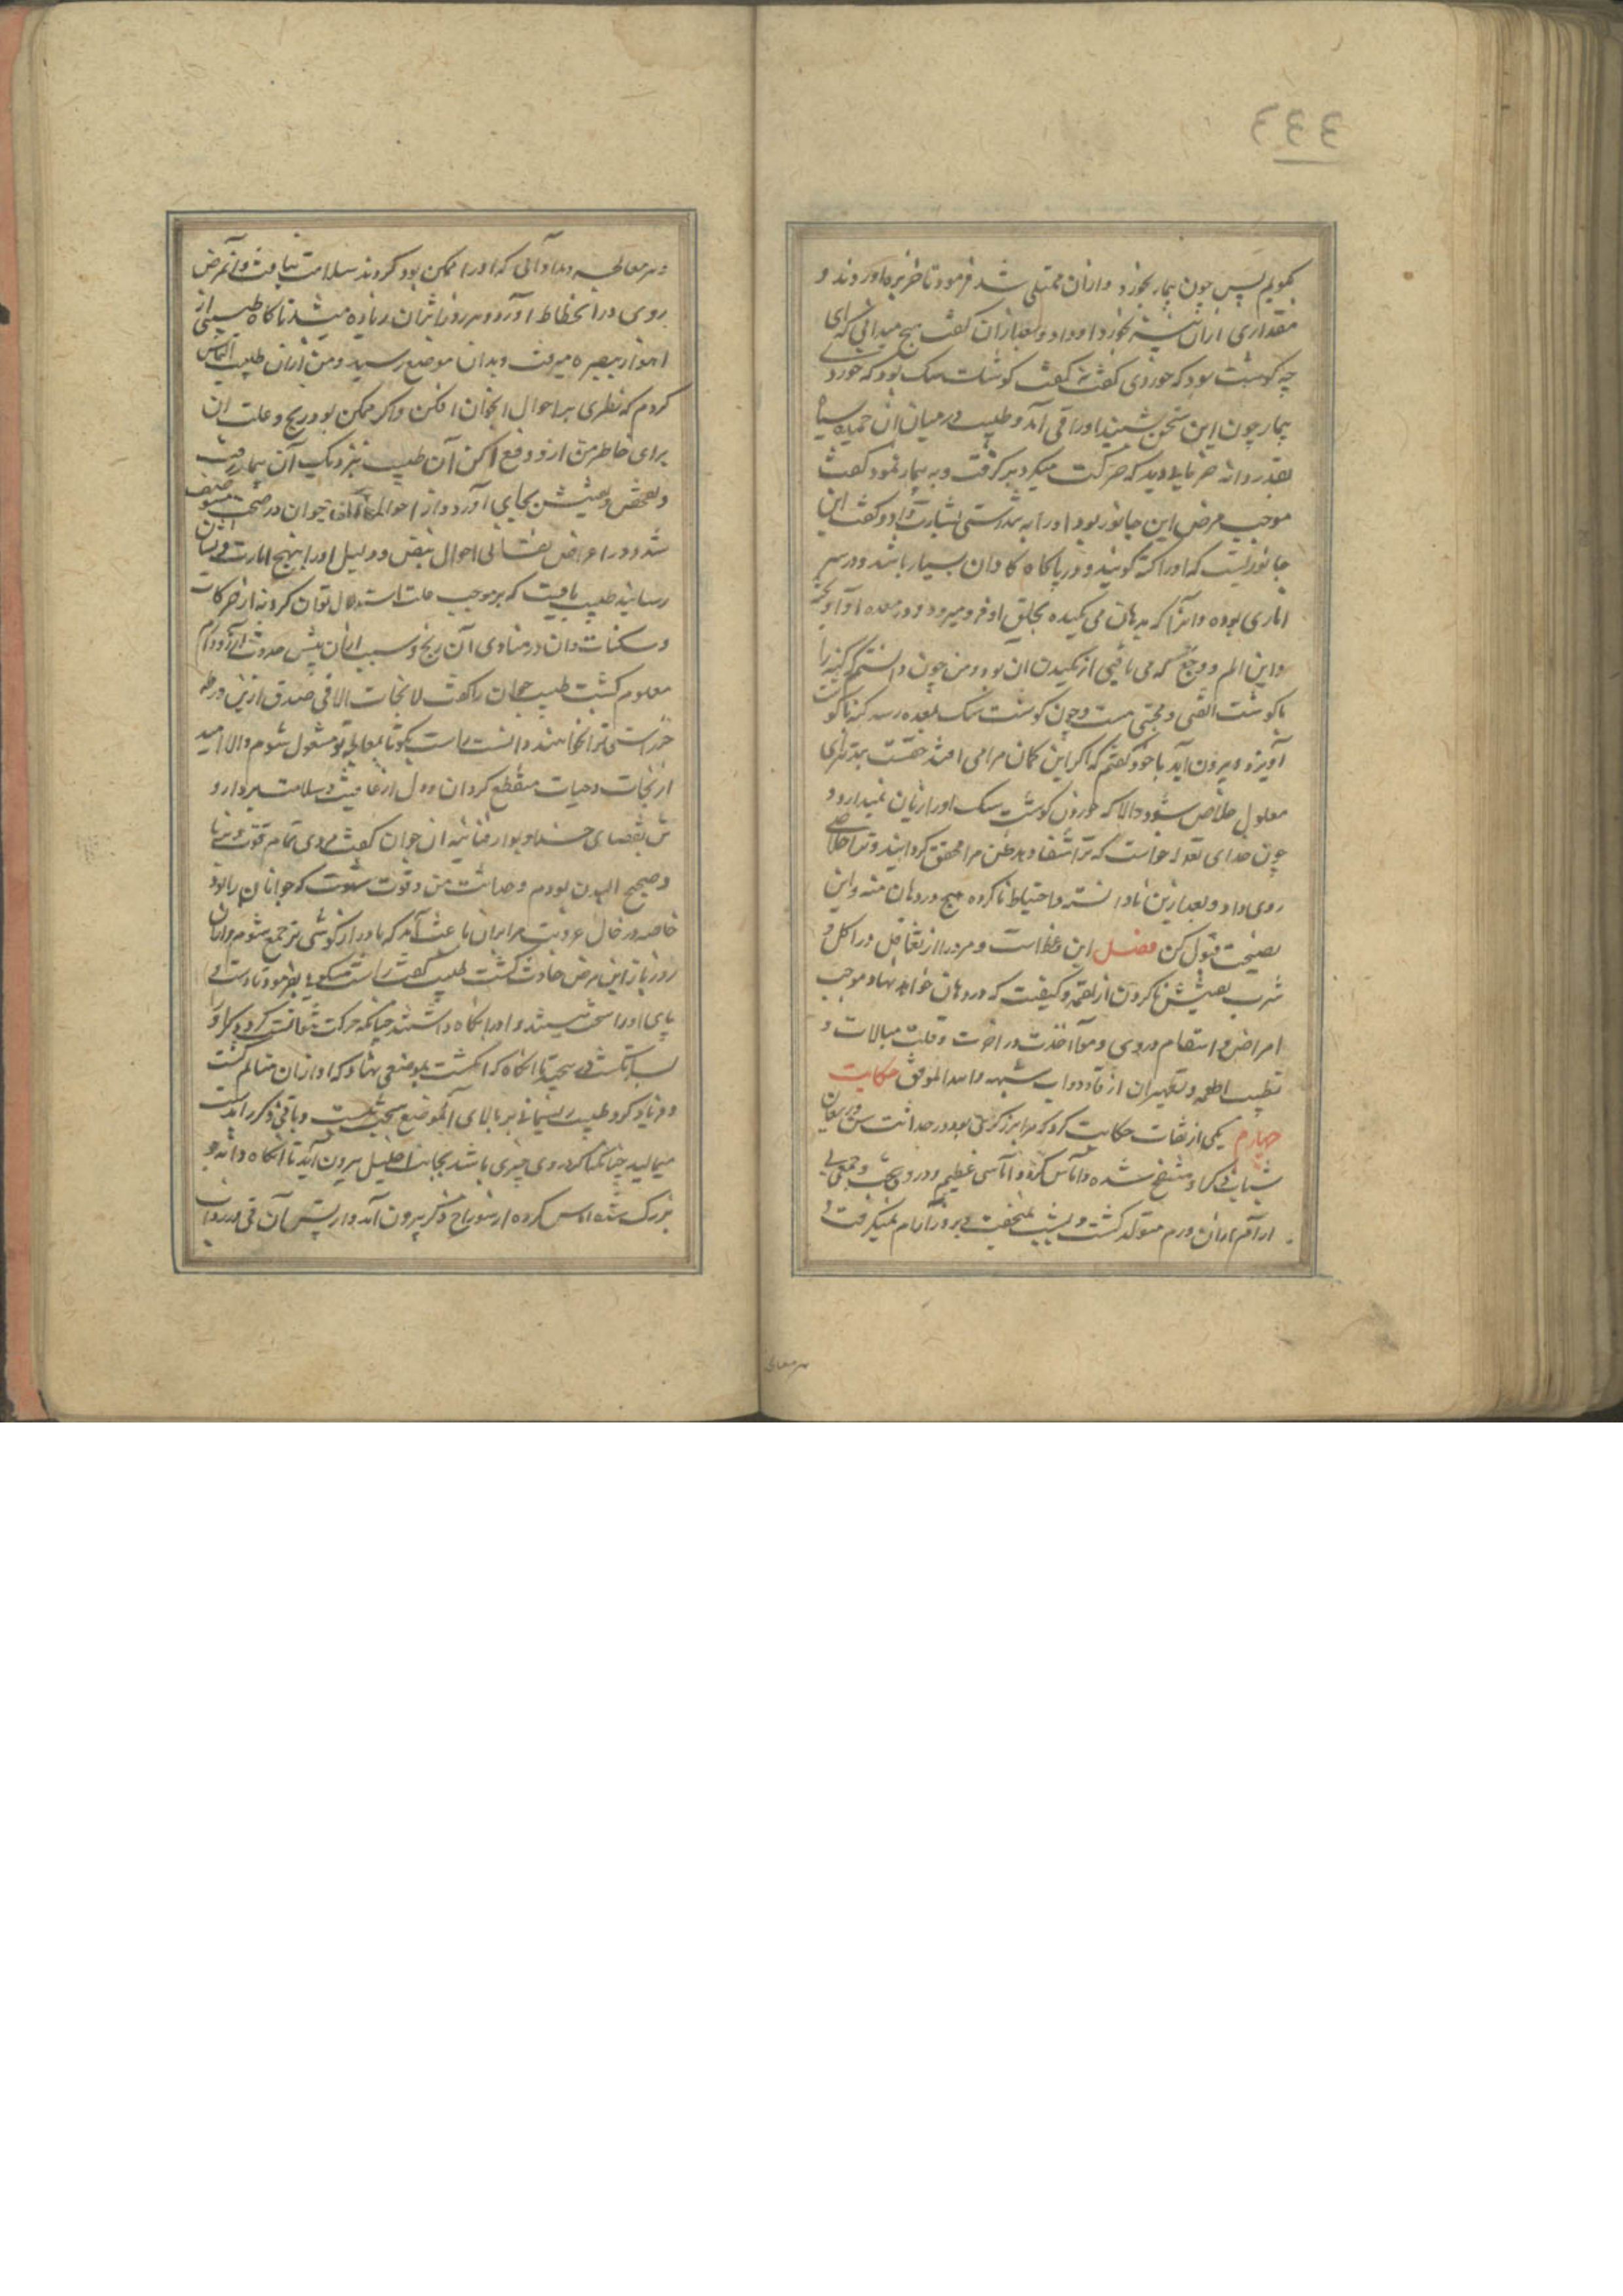 ٤٤٦
بگویم پس چون بیمار بخورد و ازان ممتلی شد فرمود تا خربزه اوردند و
مقداری ازان نیز بخورد او داد و بعد ازان گفت هیچ میدانی که این
چه گوشت بود که خوردی گفت نه گفت گوشت سک بود که خوردی
بیمار چون این سخن بشنید اورا قی آمد و طبیب در میان آن سیاه
بقدر دانه خرما بدید که حرکت میکرد برگرفت و به بیمار نمود گفت
موجب مرض این جانور بود و اورا به تندرستی بشارت داد و گفت این
جانوریست که اورا کنه گویند و در پایکاه کاوان بسیار باشد و در سر
اناری بوده و انرا که بدهان می مکیده بحلق او فرو میرود و در معده او آویخته
و این الم و وجع که می یافتی از مکیدن آن بود و من چون دانستم که کنه را
با گوشت سک محبتی هست و چون گوشت سک بمعده رسد کنه با گوشت
آویزد و بیرون آید با خود گفتم که اگر این کمان مرا می افتد حقست بتدبیر این
معلول خلاص شود و الا که خوردن گوشت سک اورا زیان نمیدارد و
چون خدای تعالی خواست که ترا شفا دهد ظن مرا محقق کردانید و ترا خلاصی
روی داد و بعد ازین نادانسته و احتیاط ناکرده هیچ در دهان منه و این
نصیحت قبول کن فصل این وعظ است مر مردم را از تغافل در اکل و
شرب و تفتیش ناکردن از لقمه و کیفیت که در دهان خواهد نهاد و موجب
امراض و انتقام در دنیی و مواخذت در اخرت و قلت مبالات و
تطیب اطعمه و تطهیر آن از قاذورات شبهه والله الموفق حکایت
چهارم یکی از ثقات حکایت کرد که مرا برزگری بود در حداثت سن و ریعان
شباب ذکر او منتفخ شده و آماس کرده و آماسی عظیم و دردی و وجعی
از الم ازان ورم متولد کشت و بشب نمیخفت و بروز آرام نمیکرفت و
هر معالجه
و هر معالجه و مداوائی که اورا ممکن بود کردند سلامت نیافت و آن مرض
روی در انحطاط آورد و هر روز اثر آن زیاده میشد تا کاه طبیبی از
اهواز ببصره میرفت و بدان موضع رسید و من ازان طبیب التماس
کردم که نظری بر احوال این جوان افکن و اکر ممکن بود رنج و علت ان
برای خاطر من ازو دفع کن آن طبیب بنزدیک آن بیمار رفت
و تفحص و تفتیش بجای آورد و از احوال آن جوان در صحت و ضعف
شد و در اعراض نفسانی احوال نبض و دلیل اورا بنهج امارت و نشان
رسانید طبیب نیافت که بر موجب علت استدلال توان کرد نه از حرکات
و سکنات و ان در مداوی آن رنج و سبب ازان پیش حدوث
معلوم کشت طبیب جوان را گفت لا نجات الا فی صدق ازین ورطه
جز راستی ترا نجات ندهد دانست راست بکوی تا بمعالجه تو مشغول شوم والا امید
از نجات و حیات منقطع کردان و دل از عافیت و سلامت بردار و
تن بقضای خدا و بوار فنا بنه ان جوان گفت مردی تمام قوت و برنا
و صحیح البدن بودم و حداثت سن و قوت شهوت که جوانان را بود
خاصه در حال عزوبت مرا بران باعث آمد که با دراز گوشی نر جمع شوم و ازان
روز باز این مرض حادث کشت طبیب گفت راست میکوئی بفرمود تا دست و
پای اورا سخت ببستند و اورا نکاه داشتند چنانکه حرکت نتوانست کرد و ذکر اورا
بسر انکشت می سنجید تا انکاه که انکشت بموضعی نهاد که او ازان متالم کشت
و فریاد کرد و طبیب ریسمانی بر بالای آن موضع سخت ببست و باقی ذکر را بدست
میمالید چنانکه اگر در وی چیزی باشد بجانب احلیل بیرون آید تا انکاه دانه جو
بزرک شده آماس کرده از سوراخ ذکر بیرون آمد و از پس آن قی و زرداب